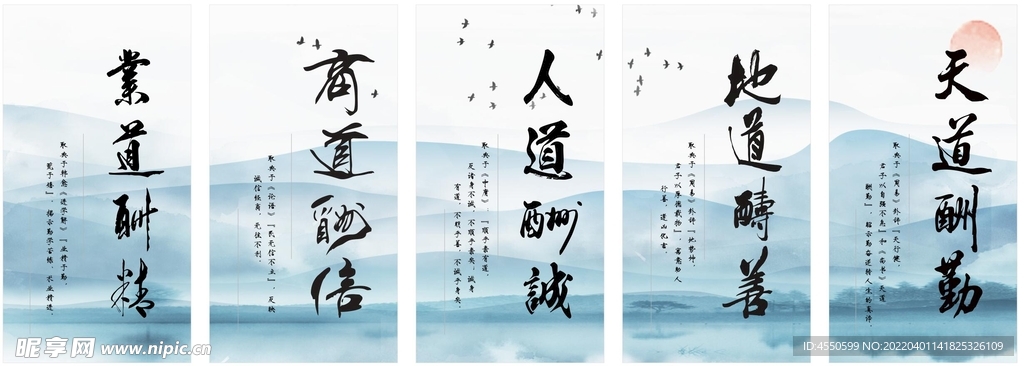 天道酬勤
取典于《周易》卦辞“天行健，
君子以自强不息”和《尚书》天道
酬勤”，昭示勤奋逆转人生的真谛。
地道醻善
取典于《周易》卦辞“地势坤，
君子以厚德载物”，寓意劝人
行善，
人道酬誠
取典于《中庸》“顺乎亲有道，
反诸身不诚，不顺乎亲矣；诚身
有道，不明乎善，不诚乎身矣。
商道酬信
取典于《论语》“民无信不立”，反映
诚信经商，无往不利
業道酬精
取典于韩愈《进学解》“业精于勤，
荒于嬉”，揭示勤学苦练，术业精进。
昵享网 www.nipic.cn
ID:4550599 NO:20220401141825326109